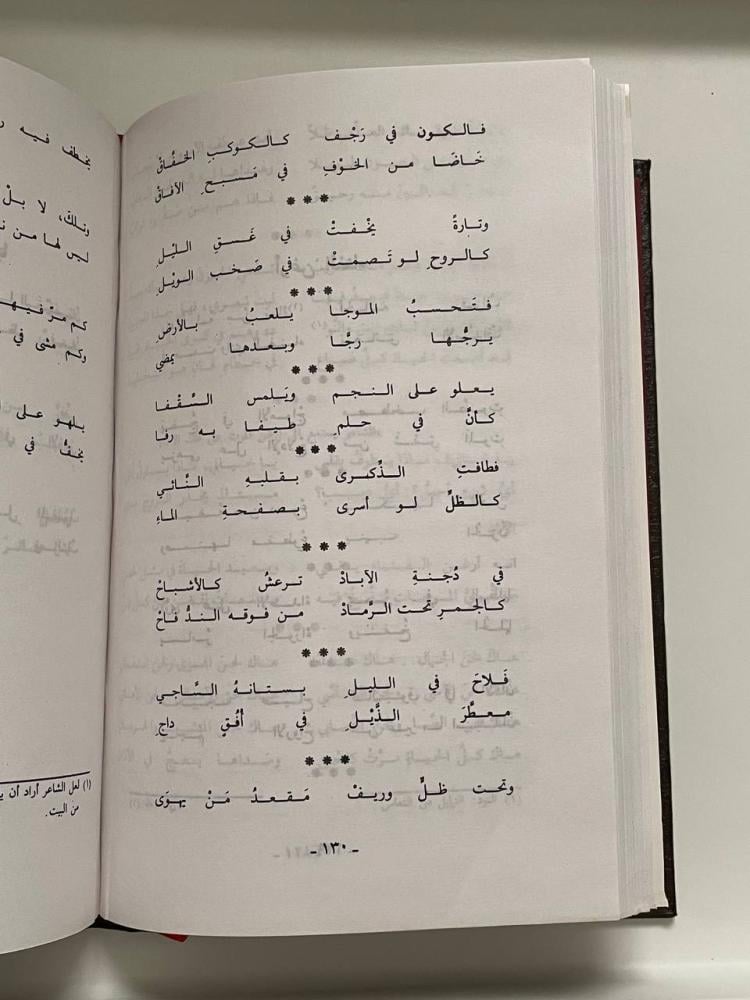 فالكون في رَجْف كالكوكبِ الخفُاقْ
خَاضَا من الخَوْفِ في مَسبحِ الآفاقْ
***
وتارةً يخْفتْ في غَسقِ الليْلِ
كالروحِ لو تَصمتْ في صَخب الويْلِ
***
فتَحسبُ الموجا يلعبُ بالأرضِ
يرجُّها رجَّا وبعدها يمضي
***
يعلو على النجم ويَلمس السُّقْفا
كأنَّ في حلمِ طيفا به رفا
***
فطافتِ الذِّكرى بقلبهِ النَّائي
كالظلِّ لو أسرى بصفحةِ الماءِ
***
في دُجنةِ الآبادْ ترعشُ كالأشباحْ
كالجمرِ تحت الرَّمادْ من فوقه الندُّ فاحْ
***
فَلاحَ في الليلِ بستانهُ السَّاجي
معطَّرَ الذَّيْلِ في أُفُقٍ داجِ
***
وتحت ظلٍّ وريفْ مَقعدُ مَنْ يهوَى
- ١٣٠ -
يخطف فيه
وتلكَ، لا بلْ
ليس لها من
كم مرّ فيها
وكم مشى في
يلهو على
يخفُّ في
(١) لعل الشاعر أراد أن
من البيت .